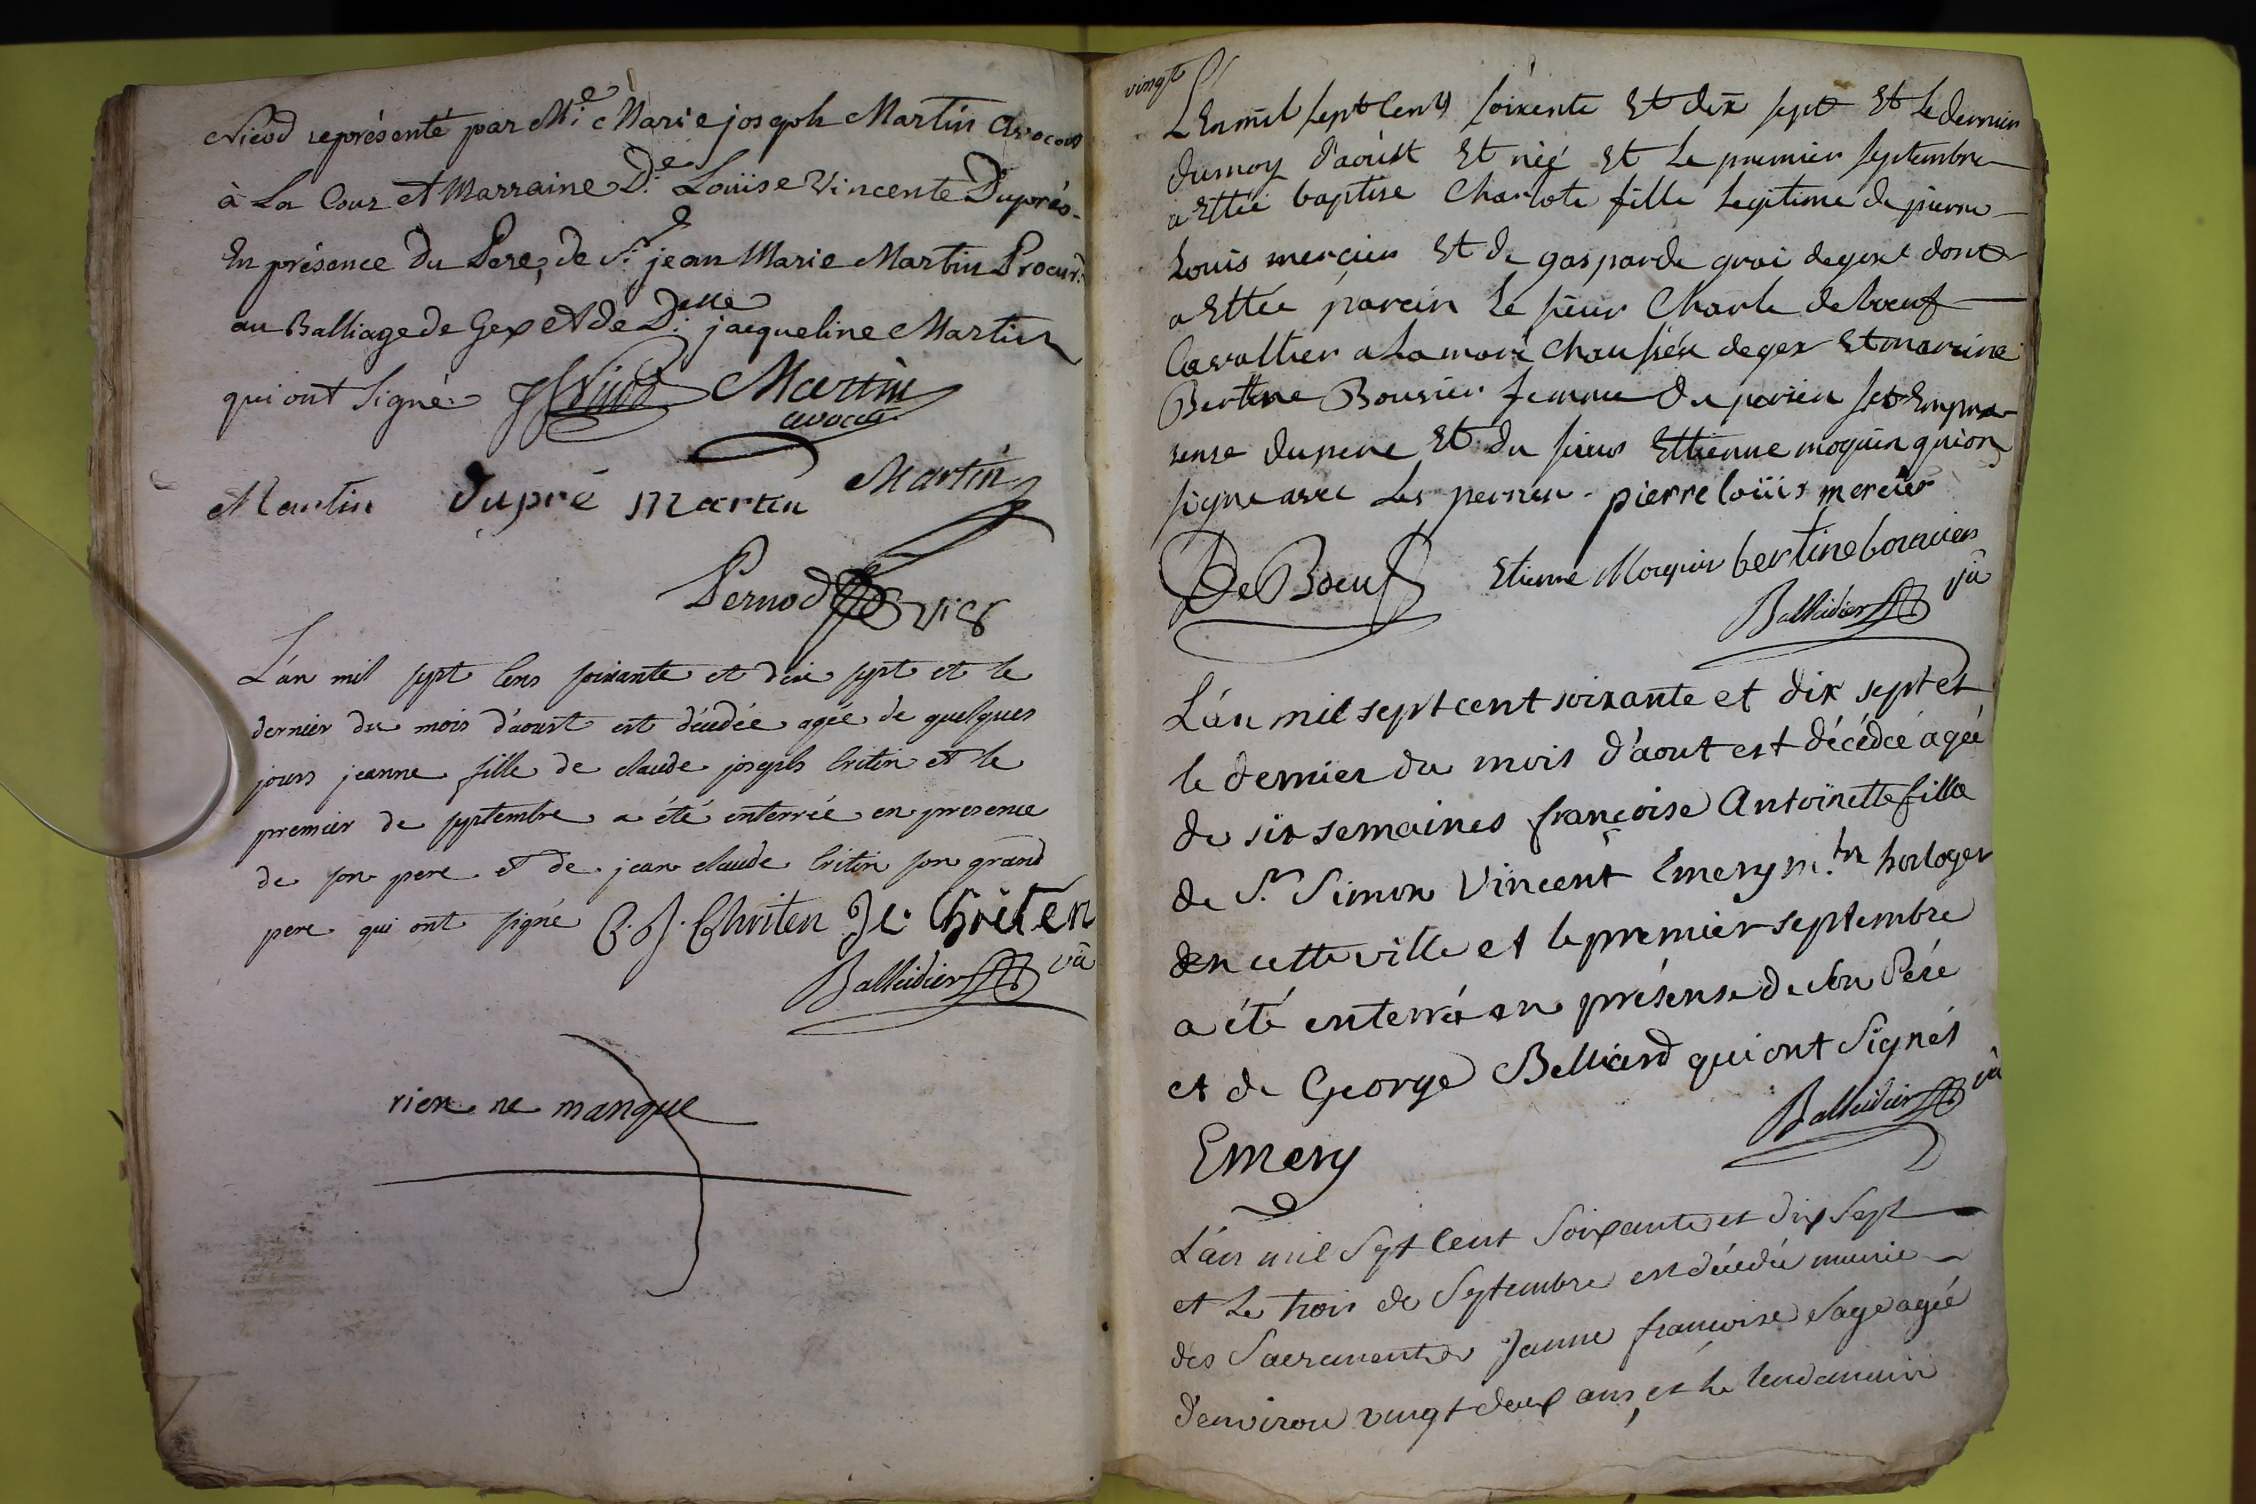 Nicod représenté par M.e Marie joseph Martin Avocat
à La Cour et Marraine D.e Loüise Vincente Duprés.
En présence du Pere, de S.r jean Marie Martin Procur.r
au Balliage de Gex et de D.elle jacqueline Martin
qui ont Signé. Nicod Martin
avocat
Martin dupré Martin Martin
Pernod vic
L'an mil sept cens soixante et dix sept et le
dernier du mois d'aoust est décédée agée de quelques
jours jeanne fille de claude joseph Critin et le
premier de septembre a été enterrée en presence
de son pere et de jean claude Critin son grand
pere qui ont signé C. J. Chriten J C Chrêten
Balleidier vic
rien ne manque
vingt
L'En mil sept Cens soixente Et dix sept Et Le dernier
du moy d'aoùst Et néé Et Le premier septembre
a Ettéé baptise Charlote fille Legitime de pierre
Louis mercier Et de gasparde groi de gex dont
a Ettée parein Le sieur Charle de boeuf
Cavallier a La maré chausséé de gex Et mareine
Bertine Bourier femme du parein set En pre
sense du pere Et du sieur Ettienne moquin qui on
signe avec Les pernier. pierre loüis mercier
De Boeuf Etienne Moquin bertine bouruier
Balleidier vic
L'an mil sept cent soixante et dix sept et
le dernier du mois d'aout est décédée ágéé
de six semaines françoise Antoinette fille
de S.r Simon Vincent Emery m.tre horloger
en cette ville et le premier septembre
a été enterré en présense de son Pére
et de George Belliard qui ont Signés
Balleidier vic
Emery
L'an mil Sept Cent Soixante et dix Sept
et Le trois de Septembre est décédée munie
des Sacrements Janne françoise Sage agée
d'environ vingt deux ans, et le lendemain